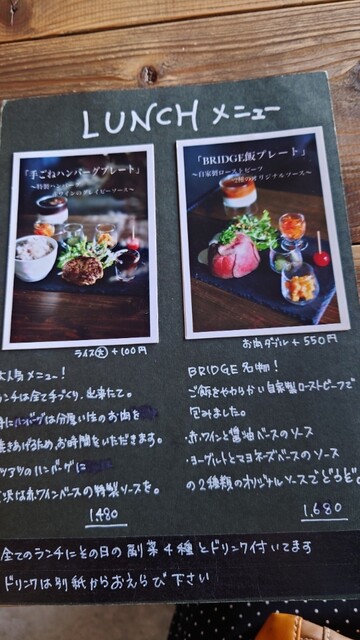 LUNCH メニュー
「手ごねハンバーグプレート」
～特製ハンバーグ
赤ワインのグレイビーソース～
「BRIDGE飯プレート」
～自家製ローストビーフ
2種のオリジナルソース～
ライス大 +100円
お肉ダブル +550円
人気メニュー!
ランチは全て手づくり、出来たて。
特にハンバーグは分厚い生のお肉を
焼きあげるため、お時間をいただきます。
ハンバーグに
沢は赤ワインベースの特製ソースを。
1,480
BRIDGE 名物!
ご飯をやわらかい自家製ローストビーフで
包みました。
・赤ワインと醤油ベースのソース
・ヨーグルトとマヨネーズベースのソース
の2種類のオリジナルソースでどうぞ。
1,680
全てのランチにその日の副菜4種とドリンク付いてます
ドリンクは別紙からおえらび下さい